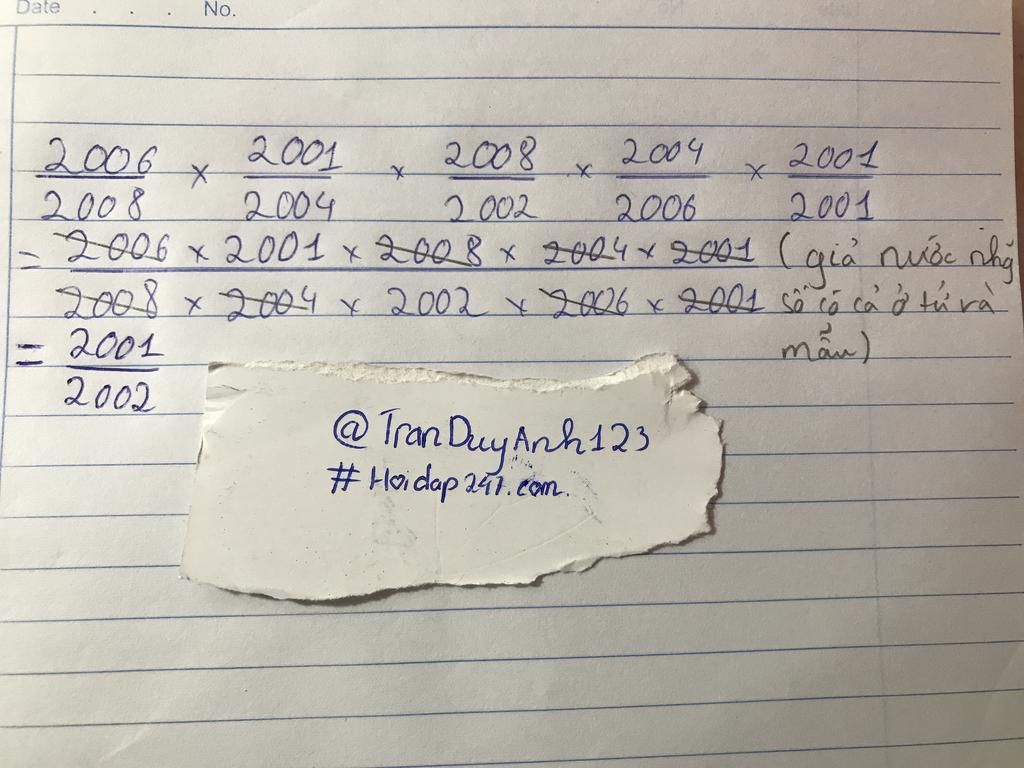 Date . . . No.
2006/2008 × 2001/2004 × 2008/2002 × 2004/2006 × 2001/2001
= 2006 × 2001 × 2008 × 2004 × 2001 / 2008 × 2004 × 2002 × 2006 × 2001 (giả nước nhg
số có cả ở tử và
mẫu)
= 2001/2002
@TranDuyAnh123
#Hoidap247.com.